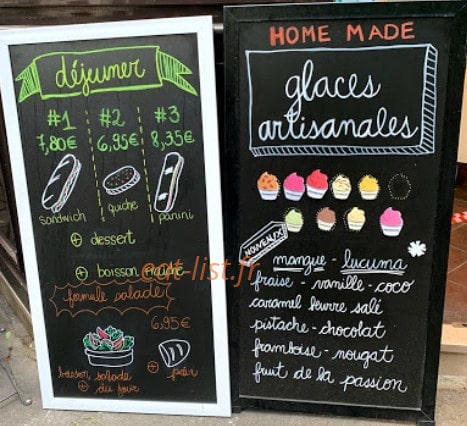 déjeuner
#1 #2 #3
7,80€ 6,95€ 8,35€
sandwich quiche panini
+ dessert
+ boisson fraîche
eat-list.fr
formule salade
6,95€
+ +
boisson salade du jour pain
HOME MADE
glaces
artisanales
NOUVEAUX
mangue - lucuma
fraise - vanille - coco
caramel beurre salé
pistache - chocolat
framboise - nougat
fruit de la passion